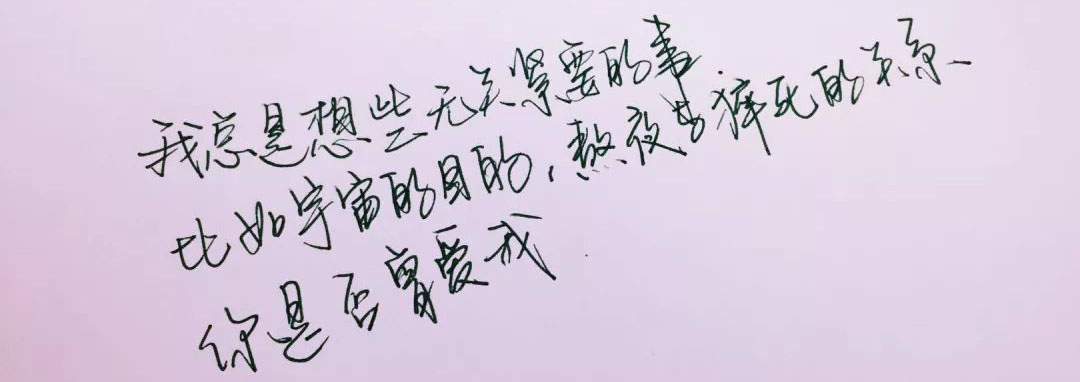 我总是想些无关紧要的事
比如宇宙的目的,熬夜与猝死的关系
你是否曾爱我